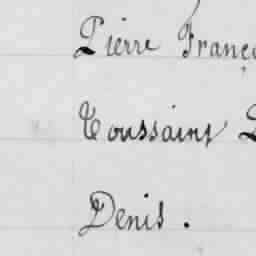 Pierre Franço
Toussaint
Denis.